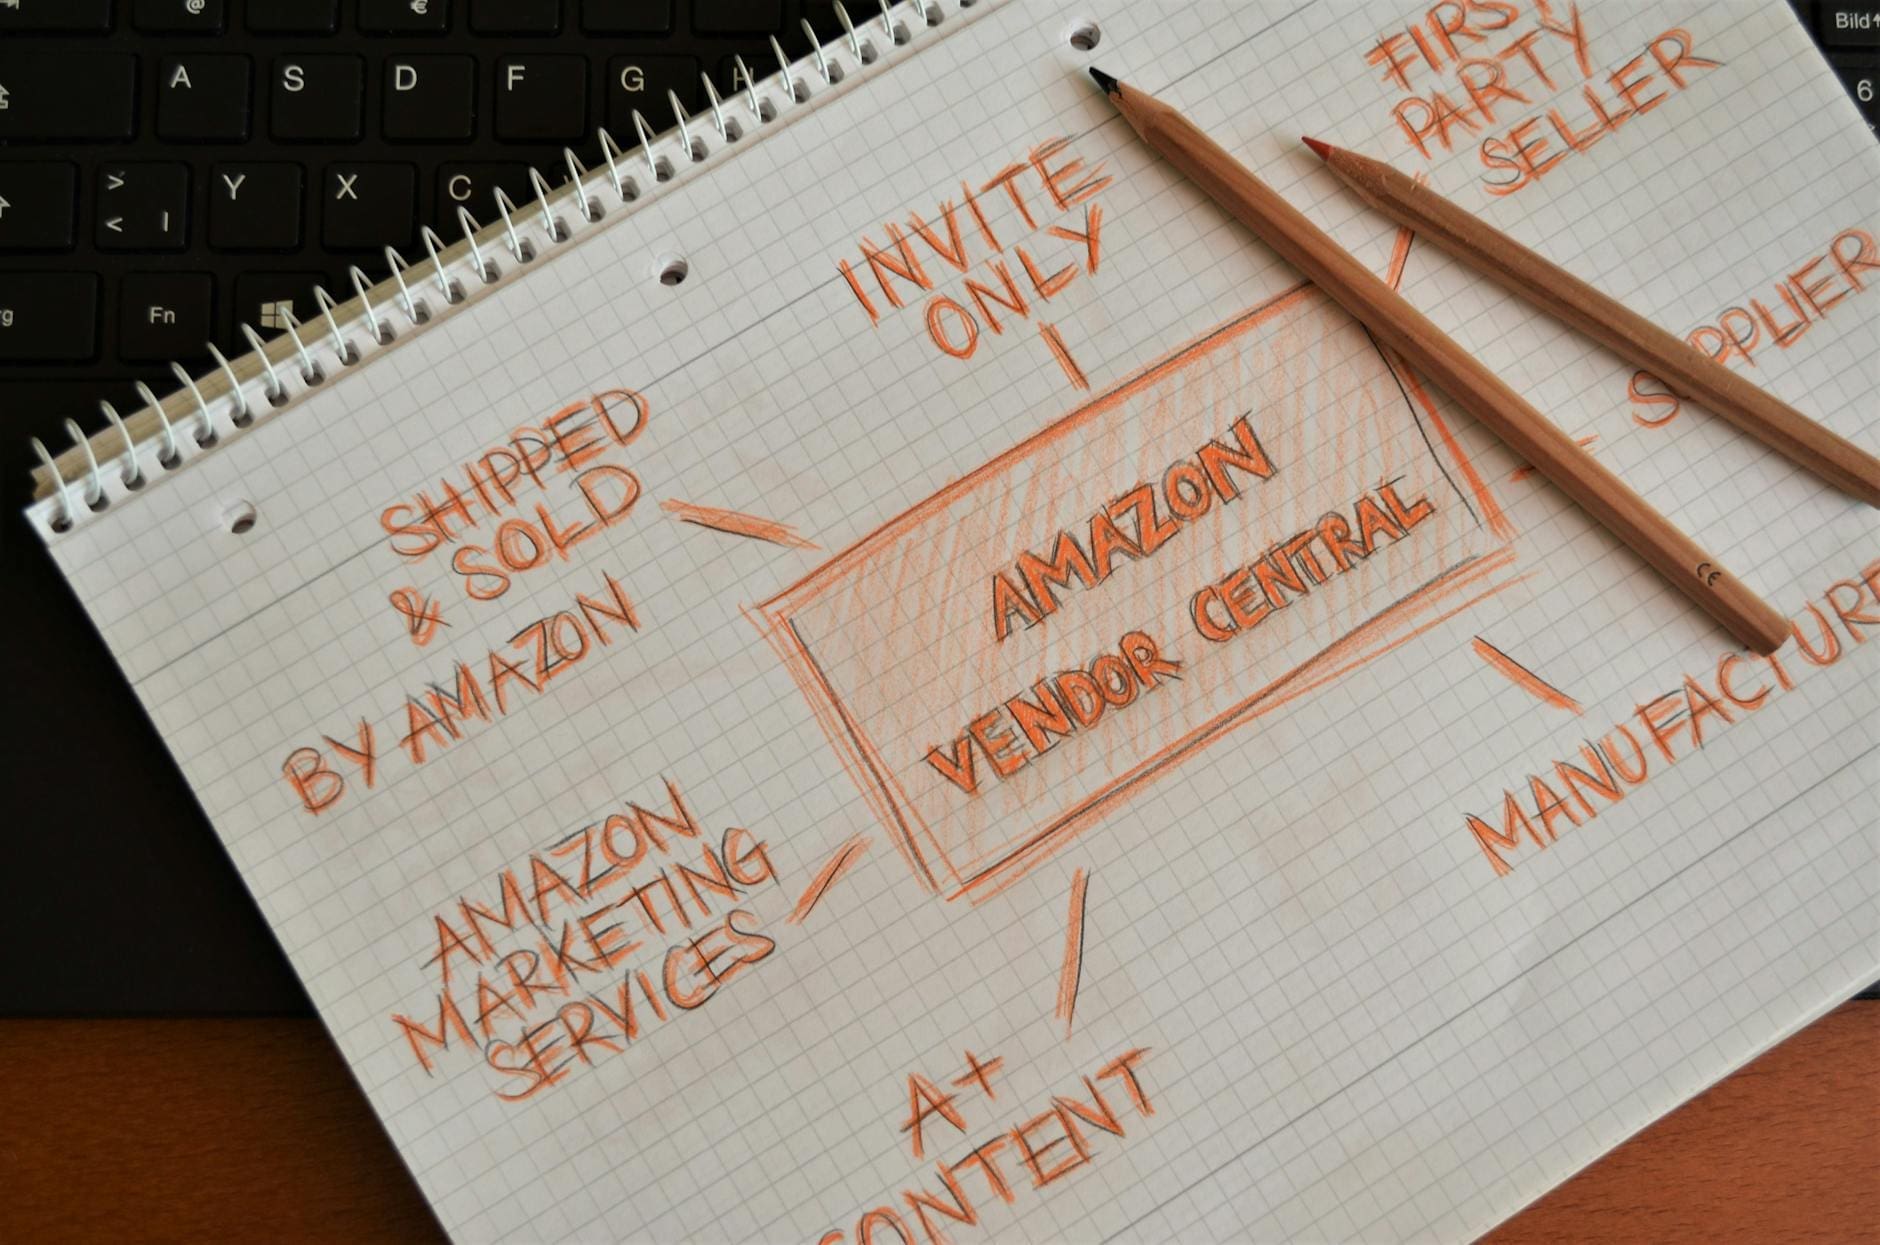 @
€
Bild
A
S
D
F
G
H
6
>
<
|
Y
X
C
Fn
INVITE
ONLY
FIRST
PARTY
SELLER
SUPPLIER
SHIPPED
& SOLD
BY AMAZON
AMAZON
VENDOR CENTRAL
MANUFACTURE
AMAZON
MARKETING
SERVICES
A+
CONTENT